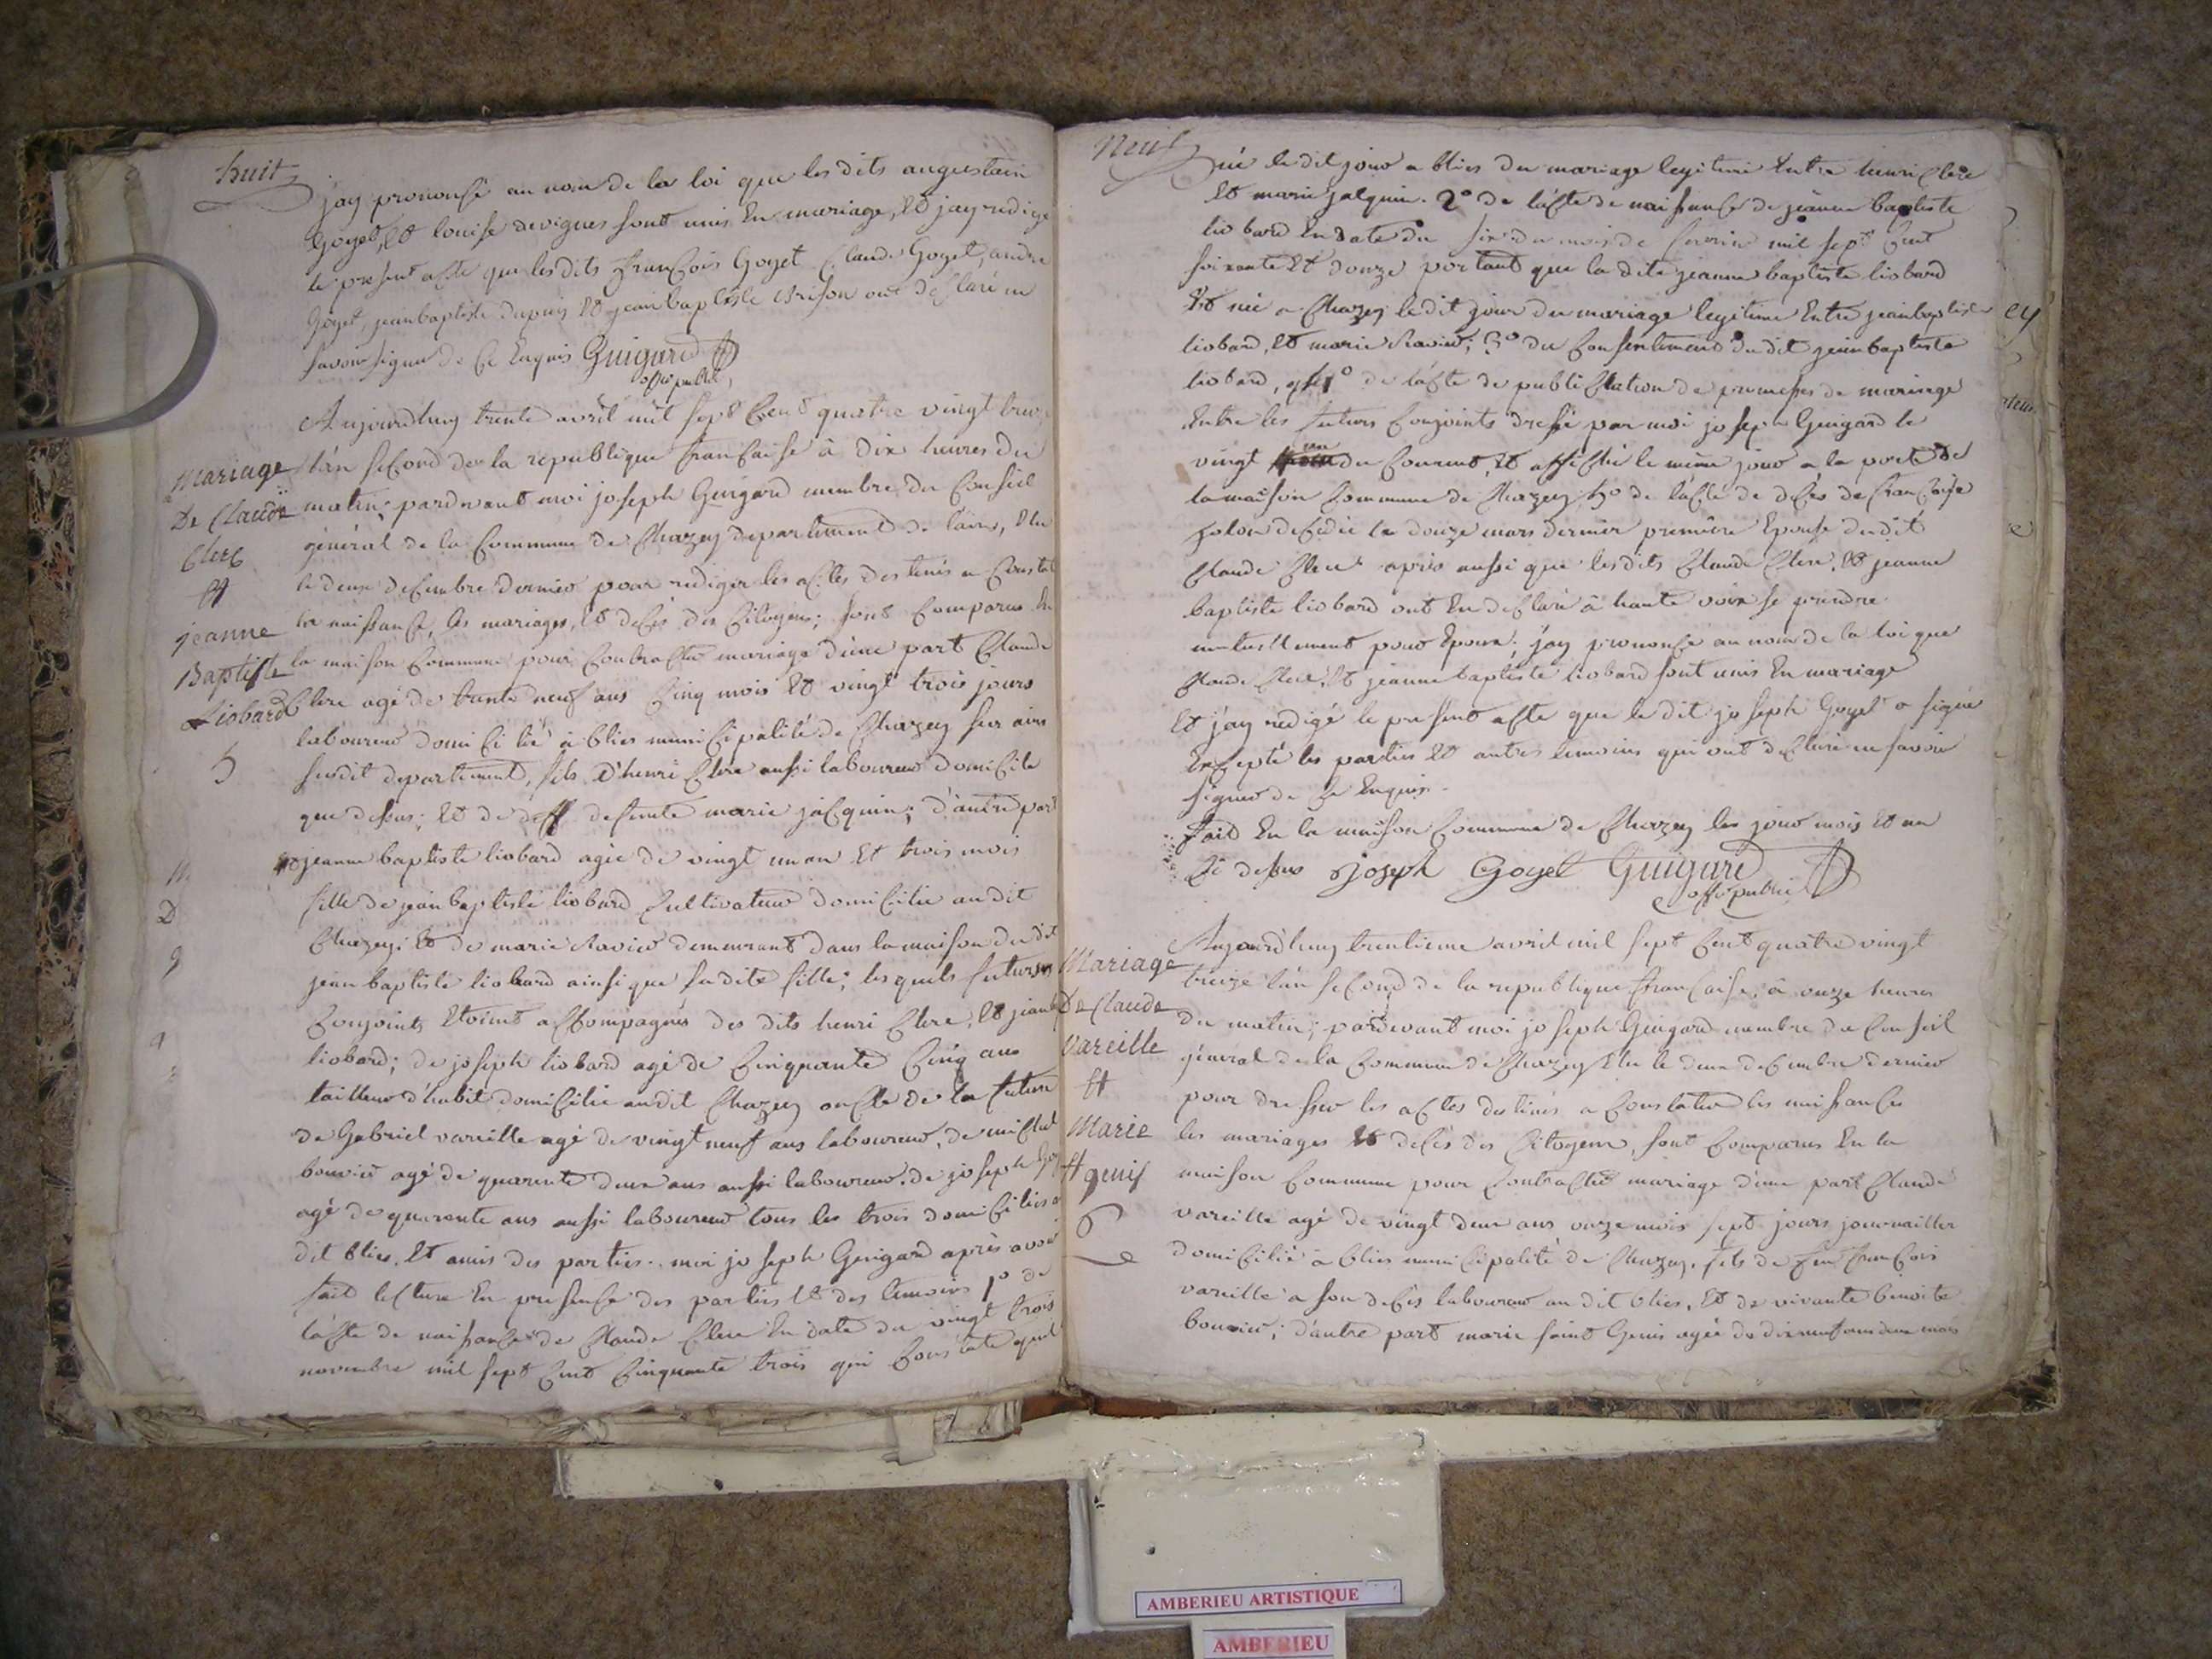 huit
jay prononsé au nom de la loi que les dits augustain
Goyet, et louise devignes sont unis En mariage, et jay redigé
le present acte que les dits françois Goyet Claude Goyet, andre
Goyet, jean baptiste dupuis et jean baptiste Brison ont declaré ne
savoir signer de ce Enquis Guigard
offi public
Aujourdhuy trente avril mil sept Cent quatre vingt treize
Mariage
De Claude
Clerc
et
jeanne
Baptiste
Liobard
5
l'an second de la republique francaise à dix heures du
matin; pardevant moi joseph Guigard membre du Conseil
général de la Commune de Chazey departement de l'ain, Elu
le deux decembre dernier pour rediger les actes destinés a Consta
les naissance, les mariages, et decés des Citoyens; sont Comparus En
la maison Commune pour Contracter mariage d'une part Claude
Clerc agé de trente neuf ans Cinq mois et vingt trois jours
laboureur domicilié à blies municipalité de Chazey sur ain
susdit departement, fils d'henri Clerc aussi laboureur domicile
que dessus; et de deff defunte marie jacquin; d'autre part
et jeanne baptiste liobard agée de vingt un an Et trois mois
fille de jean baptiste liobard Cultivateur domicilié au dit
Chazey; et de marie Ravier demeurant dans la maison du dit
jean baptiste liobard ainsi que sa dite fille; les quels futurs
Conjoints Etoient accompagnés des dits henri Clerc, et jean b
liobard; de joseph liobard agé de Cinquante Cinq ans
tailleur d'habit domicilié au dit Chazey oncle de la future
de Gabriel vareille agé de vingt neuf ans laboureur, de michel
bouvier agé de quarante deux ans aussi laboureur, de joseph Goy
agé de quarente ans aussi laboureur tous les trois domiciliés a
dit blies, et amis des parties. moi joseph Guigard après avoir
fait lecture En presence des parties et des temoins 1° de
l'acte de naissance de Claude Clerc En date du vingt trois
novembre mil sept Cent Cinquante trois qui Constate quil
Neuf
né le dit jour a blies du mariage legitime Entre henri Clerc
et marie jacquin. 2° de l'acte de naissance de jeanne baptiste
liobard En date du six du mois de fevrier mil sept Cent
soixante Et douze portant que la dite jeanne baptiste liobard
Est née a Chazey le dit jour du mariage legitime Entre jean baptiste
liobard, et marie Ravier; 3° du Consentement du dit jean baptiste
liobard, 4° de l'acte de publication de promesses de mariage
Entre les futurs Conjoints dressé par moi joseph Guigard le
vingt un du Courent, et affiché le même jour a la porte de
la maison Commune de Chazey, 5° de l'acte de decés de francoise
decédée le douze mars dernier première Epouse du dit
Claude Clerc après aussi que les dits Claude Clerc, et jeanne
baptiste liobard ont Eu declaré à haute voix se prendre
mutuellement pour Epoux; j'ay prononcé au nom de la loi que
Claude Clerc, et jeanne baptiste liobard sont unis En mariage
Et j'ay redigé le present acte que le dit joseph Goyet a signé
Excepté les parties et autres temoins qui ont declaré ne savoir
signer de ce Enquis.
fait En la maison Commune de Chazey les jour mois et an
Ci dessus Joseph Goyet Guigard
offi public
Aujourdhuy trentieme avril mil sept Cent quatre vingt
Mariage
De Claude
Vareille
et
Marie
St genis
6
treize l'an second de la republique francaise, à onze heures
du matin; pardevant moi joseph Guigard membre du Conseil
général de la Commune de Chazey Elu le deux decembre dernier
pour dresser les actes destinés a Constater les naissances
les mariages et decés des Citoyens, sont Comparus En la
maison Commune pour Contracter mariage d'une part Claude
vareille agé de vingt deux ans onze mois sept jours journaillier
domicilié à blies municipalité de Chazey, fils de feu francois
vareille a son decés laboureur au dit blies, et de vivante benoite
bouvier; d'autre part marie saint Genis agée de dix neuf ans deux mois
ey
AMBERIEU ARTISTIQUE
AMBERIEU